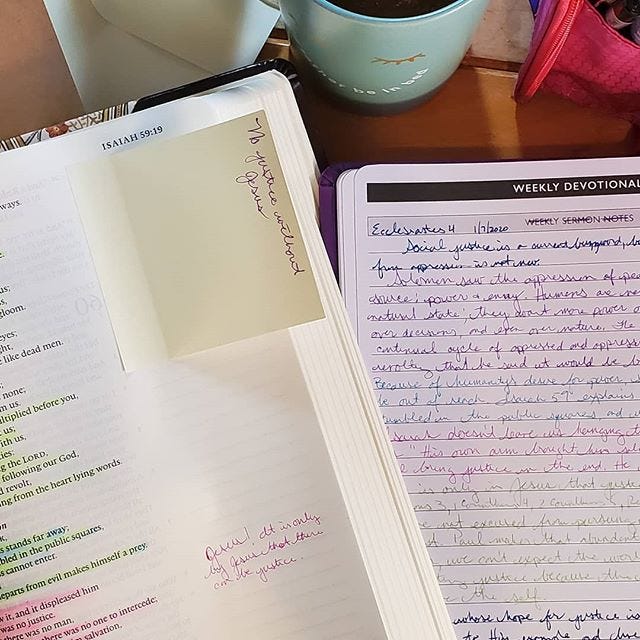 ISAIAH 59:19
ways.
us;
gloom.
eyes;
ght,
like dead men.
none;
om us.
ultiplied before you,
us;
with us,
ies:
ng the LORD,
following our God,
d revolt,
ing from the heart lying words.
on
s stands far away;
bled in the public squares,
ss cannot enter.
departs from evil makes himself a prey.
w it, and it displeased him
was no justice.
there was no man,
there was no one to intercede;
salvation,
No justice without
Jesus
Jesus! It is only
by Jesus that there
can be justice.
er be in bed
WEEKLY DEVOTIONAL
Ecclesiastes 4 1/7/2020 WEEKLY SERMON NOTES
Social justice is a current buzzword, b
from oppression is not new.
Solomon saw the oppression of peo
source: power & envy. Humans are
natural state; they want more power o
over decisions, and even over nature. He
continual cycle of oppressed and oppress
revolting that he said it would be b
Because of humanity's desire for power,
be out of reach. Isaiah 59 explains
umbled in the public squares, and
doesn't leave us hanging t
"His own arm brought him sal
bring justice in the end. He
is only in Jesus that justic
not excused from pursuing
Paul makes that abundant
we can't expect the wor
justice because the
the self.
whose hope for justice is
to His example and